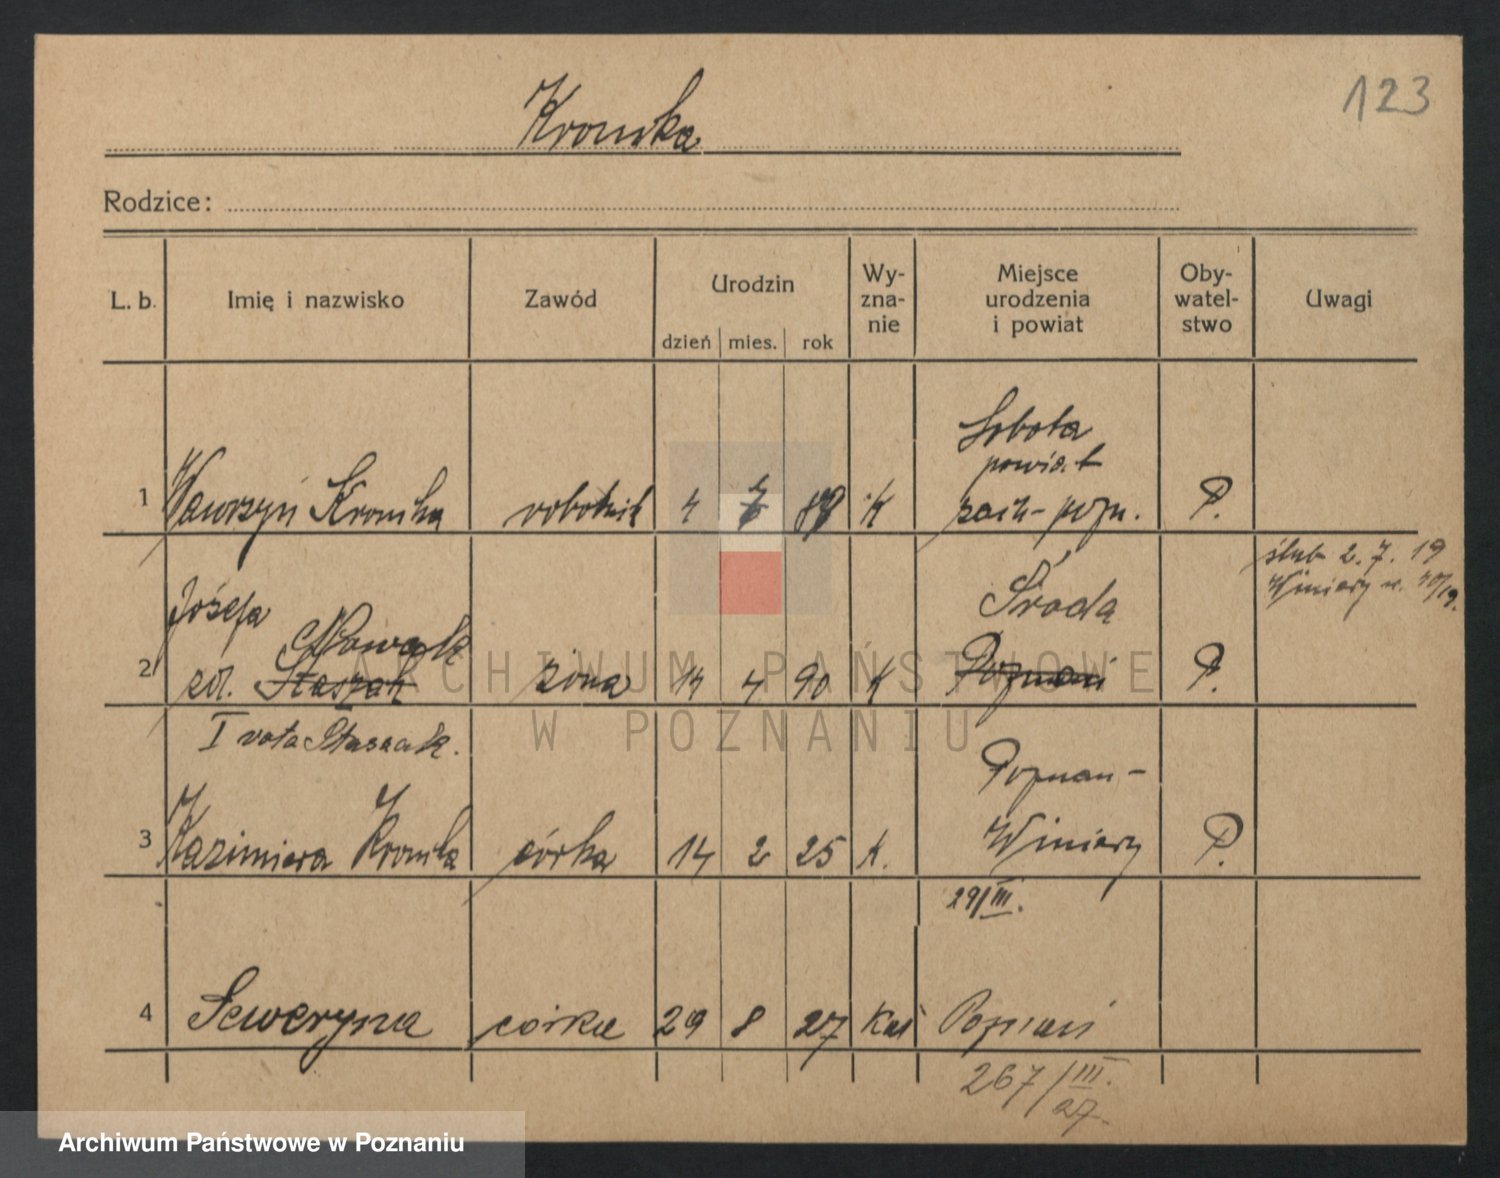 123
Kromka
Rodzice:
L. b.
Imię i nazwisko
Zawód
Urodzin
dzień mies. rok
Wy-
zna-
nie
Miejsce
urodzenia
i powiat
Oby-
watel-
stwo
Uwagi
Sobota
powiat
1 Wawrzyn Kromka robotnik 4 7 K zach-pozn. P.
ślub 2. 7. 19
Winiary
Józefa
Nowak
Środa
2 zd. Staszak żona 14 4 90 K Poznań P.
I vota Staszak.
Poznań-
3 Kazimiera Kromka córka 14 2 25 K. Winiary P.
29/III.
4 Seweryna córka 29 8 27 Kat Poznań
267/III.
27.
ARCHIWUM PAŃSTWOWE
W POZNANIU
Archiwum Państwowe w Poznaniu